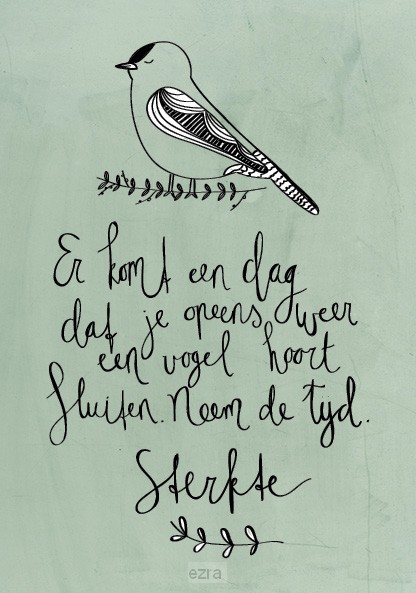 Er komt een dag
dat je opeens weer
een vogel hoort
fluiten. Neem de tijd.
Sterkte
ezra